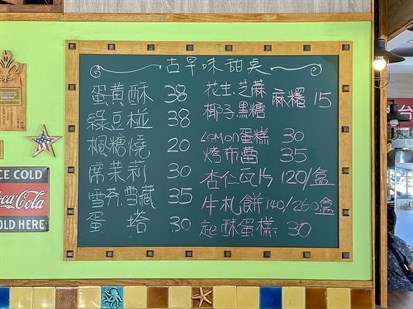 古早味甜点
蛋黃酥 38
綠豆椪 38
楓糖燒 20
席茉莉 30
雪芬雪藏 35
蛋塔 30
花生.芝蔴
椰子黑糖 麻糬 15
Lemon蛋糕 30
烤布蕾 35
杏仁瓦片 120/盒
牛札餅 140/260盒
起酥蛋糕 30
ICE COLD
Coca-Cola
SOLD HERE